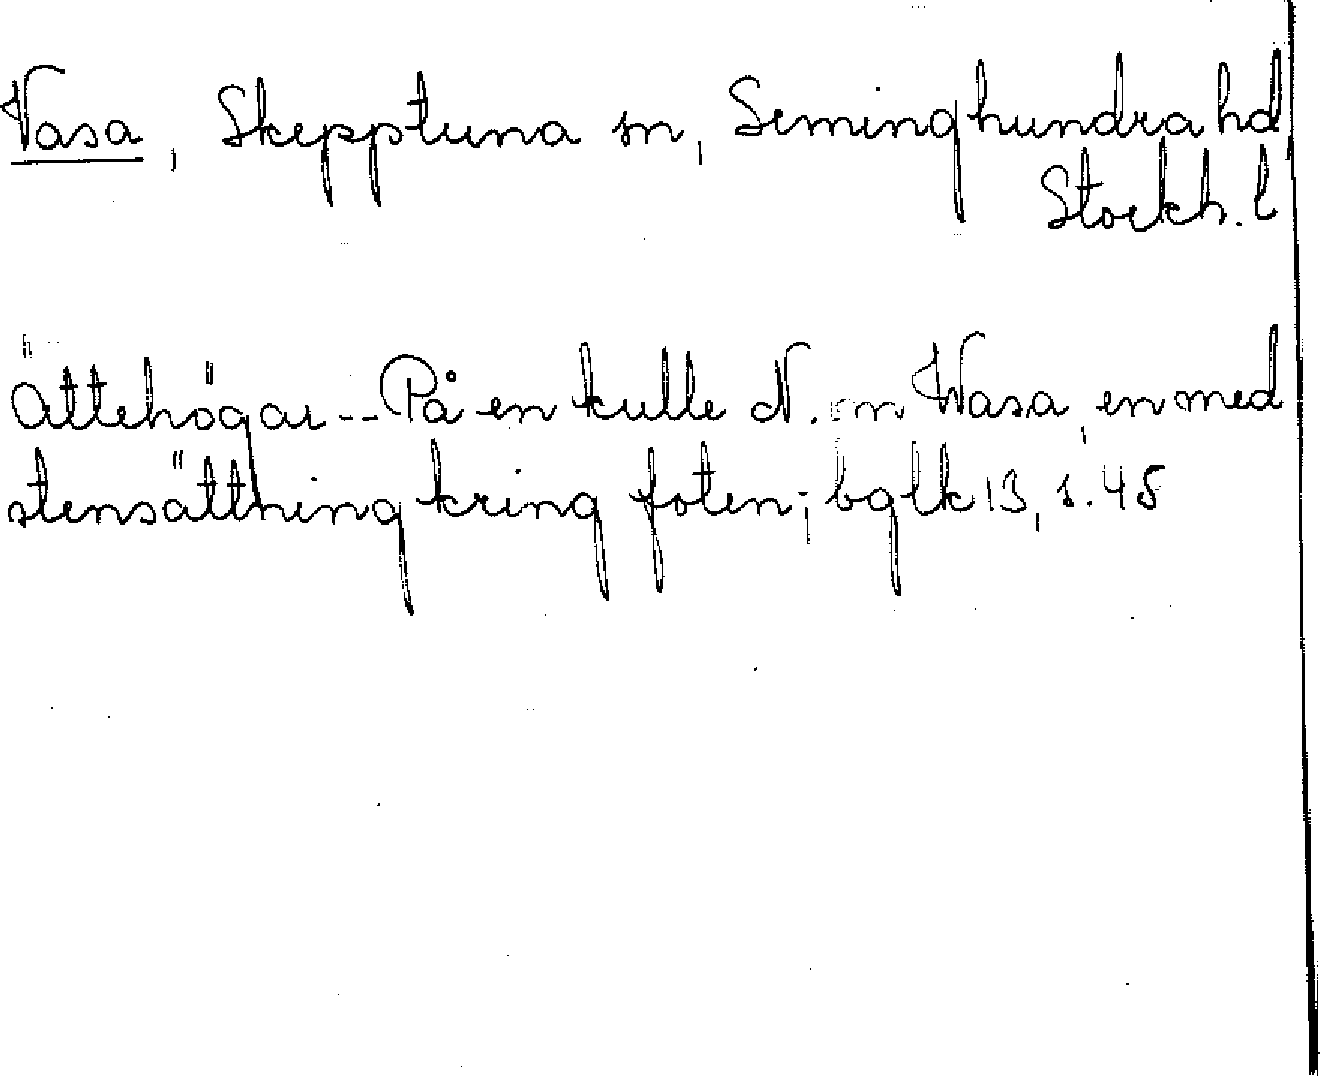 Vasa, Skepptuna sn, Seminghundra hd,
Stockh. l
Ättehögar -- På en kulle N. om Wasa, en med
stensättning kring foten; bglk 13, s. 45